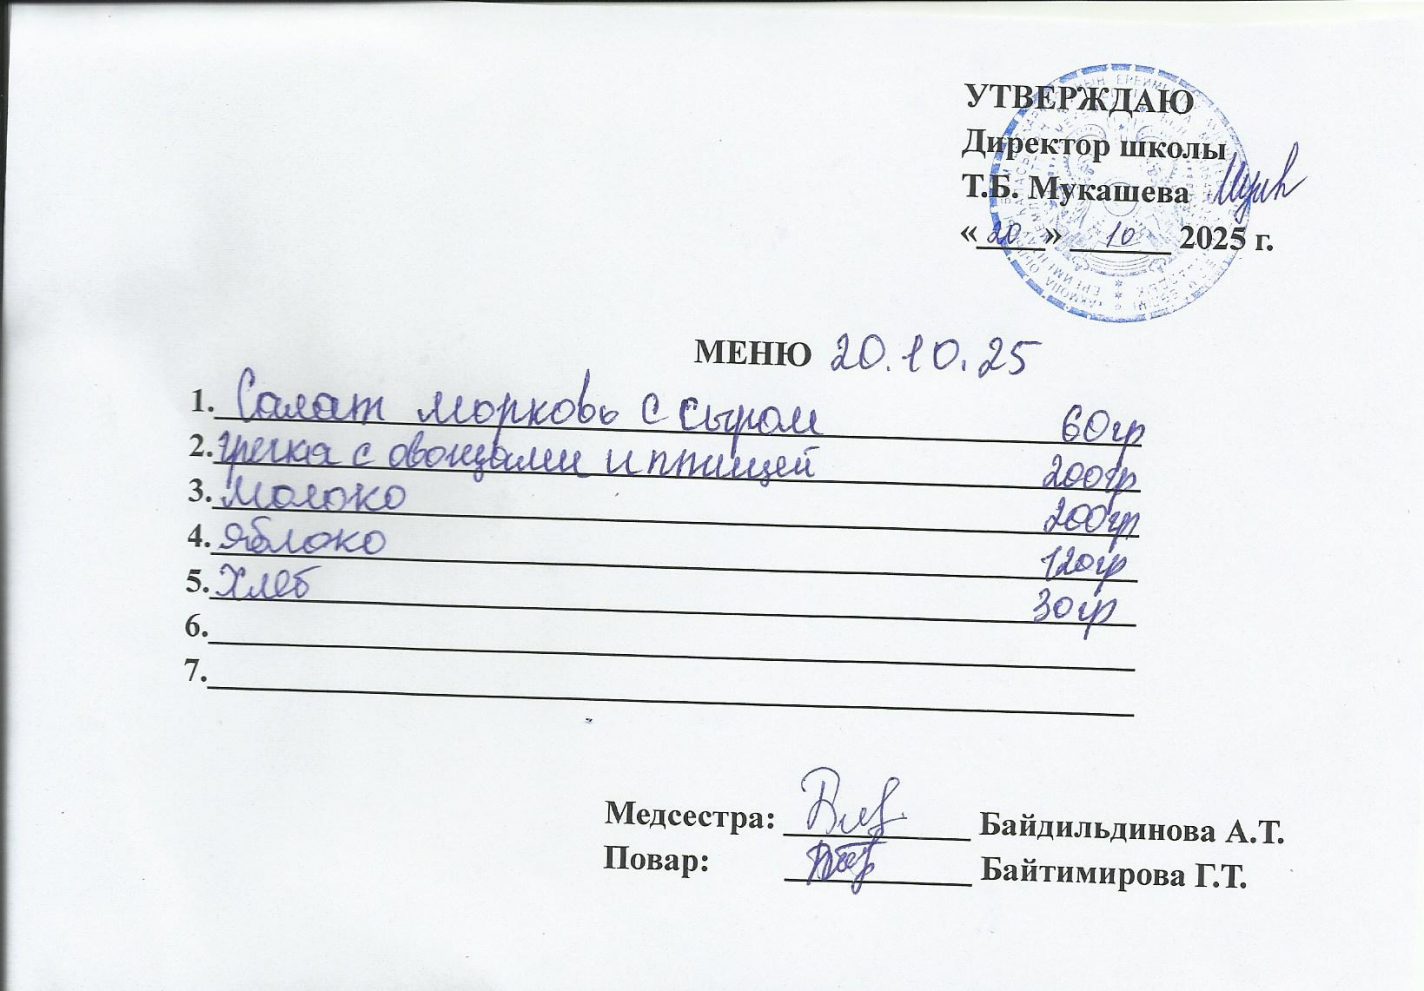 УТВЕРЖДАЮ
Директор школы
Т.Б. Мукашева
«20» 10 2025 г.
МЕНЮ 20.10.25
1. Салат морковь с сыром 60гр
2. гречка с овощами и птицей 200гр
3. Молоко 200гр
4. Яблоко 120гр
5. Хлеб 30гр
6.
7.
Медсестра: Байдильдинова А.Т.
Повар: Байтимирова Г.Т.